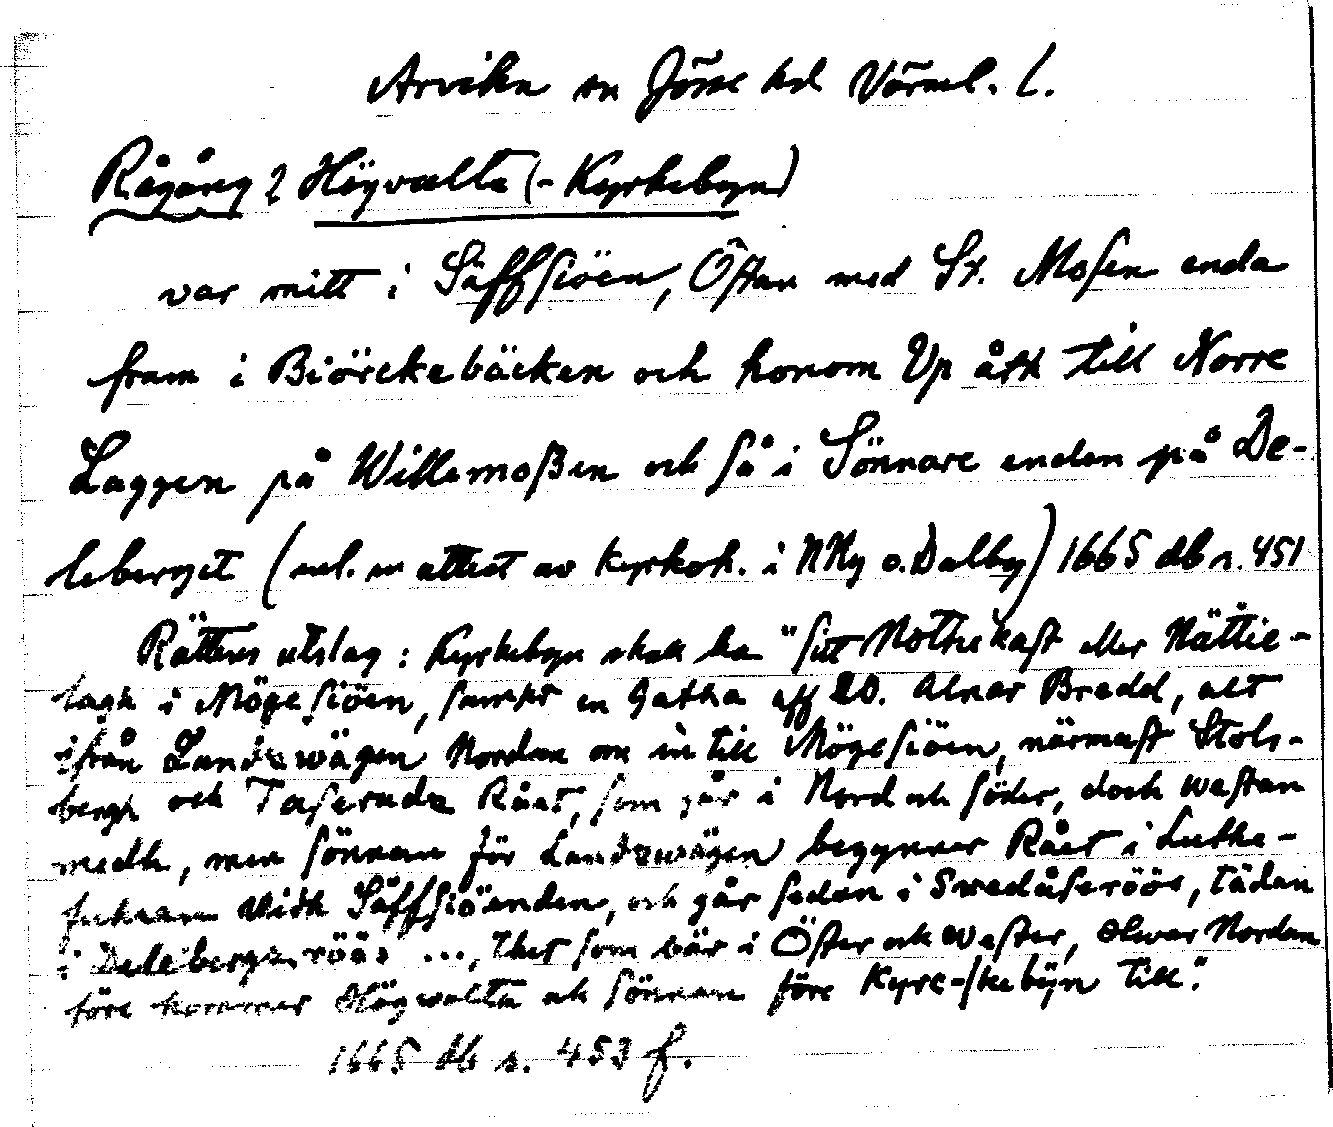 Arvika sn Jösse hd Värml. L.
Rågång 2 Högvalta (- Kyrkebyn)
var mitt i Säffsiöen, Östan med St. Mosen enda
fram i Biörckebäcken och honom Up åth till Norre
Laggen på Willemoßen och så i Sönnare endan på De-
leberget (enl. en attest av kyrkoh. i NNy o. Dalby) 1665 db s. 451
Rättens utslag: Kyrkebyn skall ha "sitt Nothekast eller Nättie-
lagh i Mögesiöen, sampt en Gatha aff 20. Alnar Bredd, alt
ifrån Landzwägen Nordan om in till Mögesiöen, närmast Stols-
bergh och Taserudz Rået, som går i Nord och söder, doch westan
medh, men sönnan för Landzwägen begynner Rået i Luthe-
widh Säffsiöenden, och går sedan i Swedåseröös, tädan
i Delebergz röös ..., thet som bär i Öster och Wester, Nordan
före kommer Högwalta och sönnan före Kyrc-/kebÿn till".
1665 db s. 453 f.